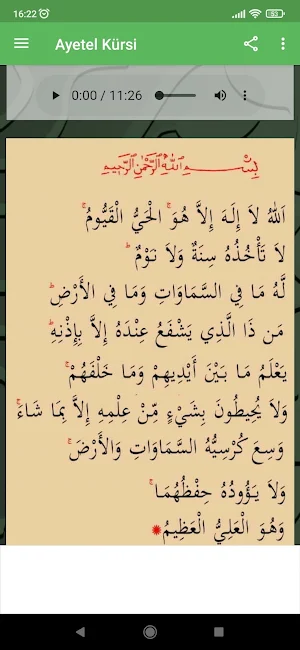 16:22
93
Ayetel Kürsi
0:00 / 11:26
بِسْمِ اللهِ الرَّحْمٰنِ الرَّحِيمِ
اَللهُ لاَ إِلَهَ إِلاَّ هُوَ ۚ الْحَيُّ الْقَيُّومُ ۚ
لاَ تَأْخُذُهُ سِنَةٌ وَلاَ نَوْمٌ ۗ
لَّهُ مَا فِي السَّمَاوَاتِ وَمَا فِي الأَرْضِ ۗ
مَن ذَا الَّذِي يَشْفَعُ عِنْدَهُ إِلاَّ بِإِذْنِهِ ۗ
يَعْلَمُ مَا بَيْنَ أَيْدِيهِمْ وَمَا خَلْفَهُمْ ۚ
وَلاَ يُحِيطُونَ بِشَيْءٍ مِّنْ عِلْمِهِ إِلاَّ بِمَا شَاءَ ۚ
وَسِعَ كُرْسِيُّهُ السَّمَاوَاتِ وَالأَرْضَ ۚ
وَلاَ يَؤُودُهُ حِفْظُهُمَا ۚ
وَهُوَ الْعَلِيُّ الْعَظِيمُ